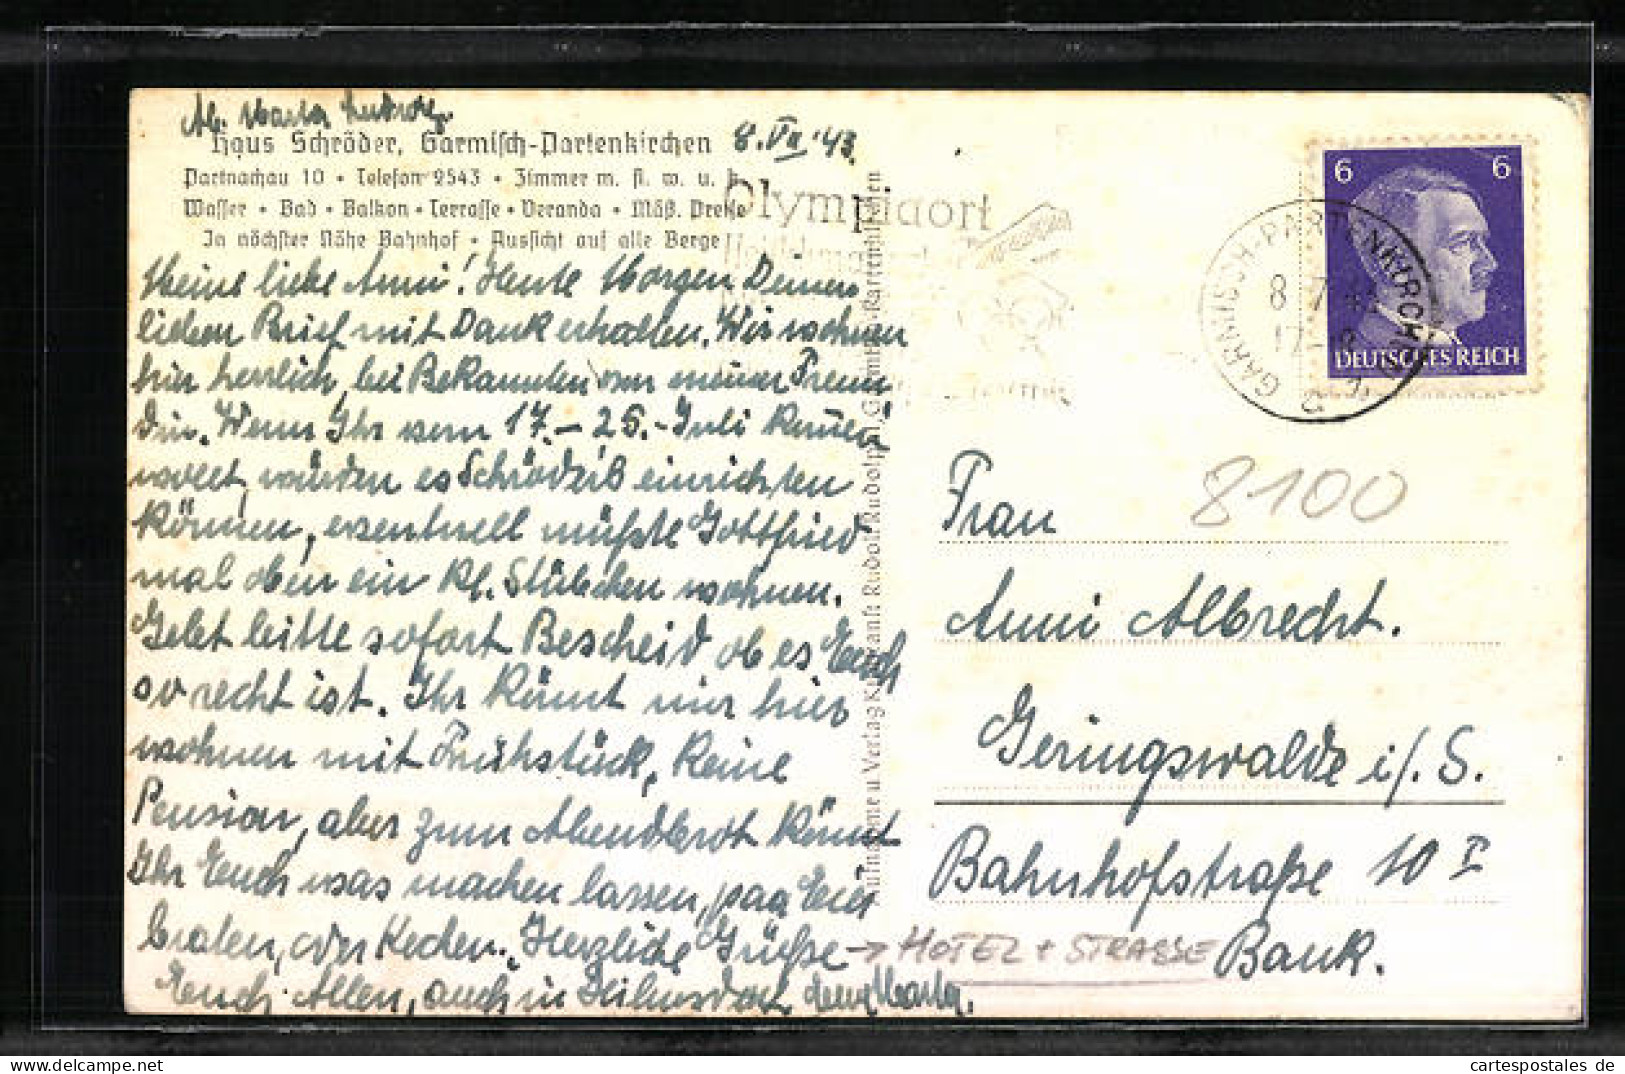 Ab. Marta
Haus Schröder, Garmisch-Partenkirchen 8. VII. '43.
Partnachau 10 • Telefon 2543 • Zimmer m. fl. w. u. k.
Wasser • Bad • Balkon • Terrasse • Veranda • Mäß. Preise
In nächster Nähe Bahnhof • Aussicht auf alle Berge
Meine liebe Anni! Heute Morgen Deinen
lieben Brief mit Dank erhalten. Wir wohnen
hier herrlich, bei Bekannten von meiner Freun-
din. Wenn Ihr vom 17.-25.-Juli kommen
wollet, würden es Schröders einrichten
können, eventuell müßte Gottfried
mal oben ein kl. Stübchen wohnen.
Gebet bitte sofort Bescheid ob es Euch
so recht ist. Ihr könnt nur hier
wohnen mit Frühstück, keine
Pension, aber zum Abendbrot könnt
Ihr Euch was machen lassen, paar Eier
braten, oder kochen. Herzliche Grüße
Euch Allen, auch in Eure Marta.
Aufnahme u. Verlag Kunstanst. Rudolf Rudolphi, Garmisch-Partenkirchen
Olympiaort
GARMISCH-PARTENKIRCHEN
8.7.43
6 6
DEUTSCHES REICH
8100
Frau
Anni Albrecht.
Geringswalde i/. S.
Bahnhofstraße 10 I
Bank.
→ HOTEL + STRASSE
cartespostales de